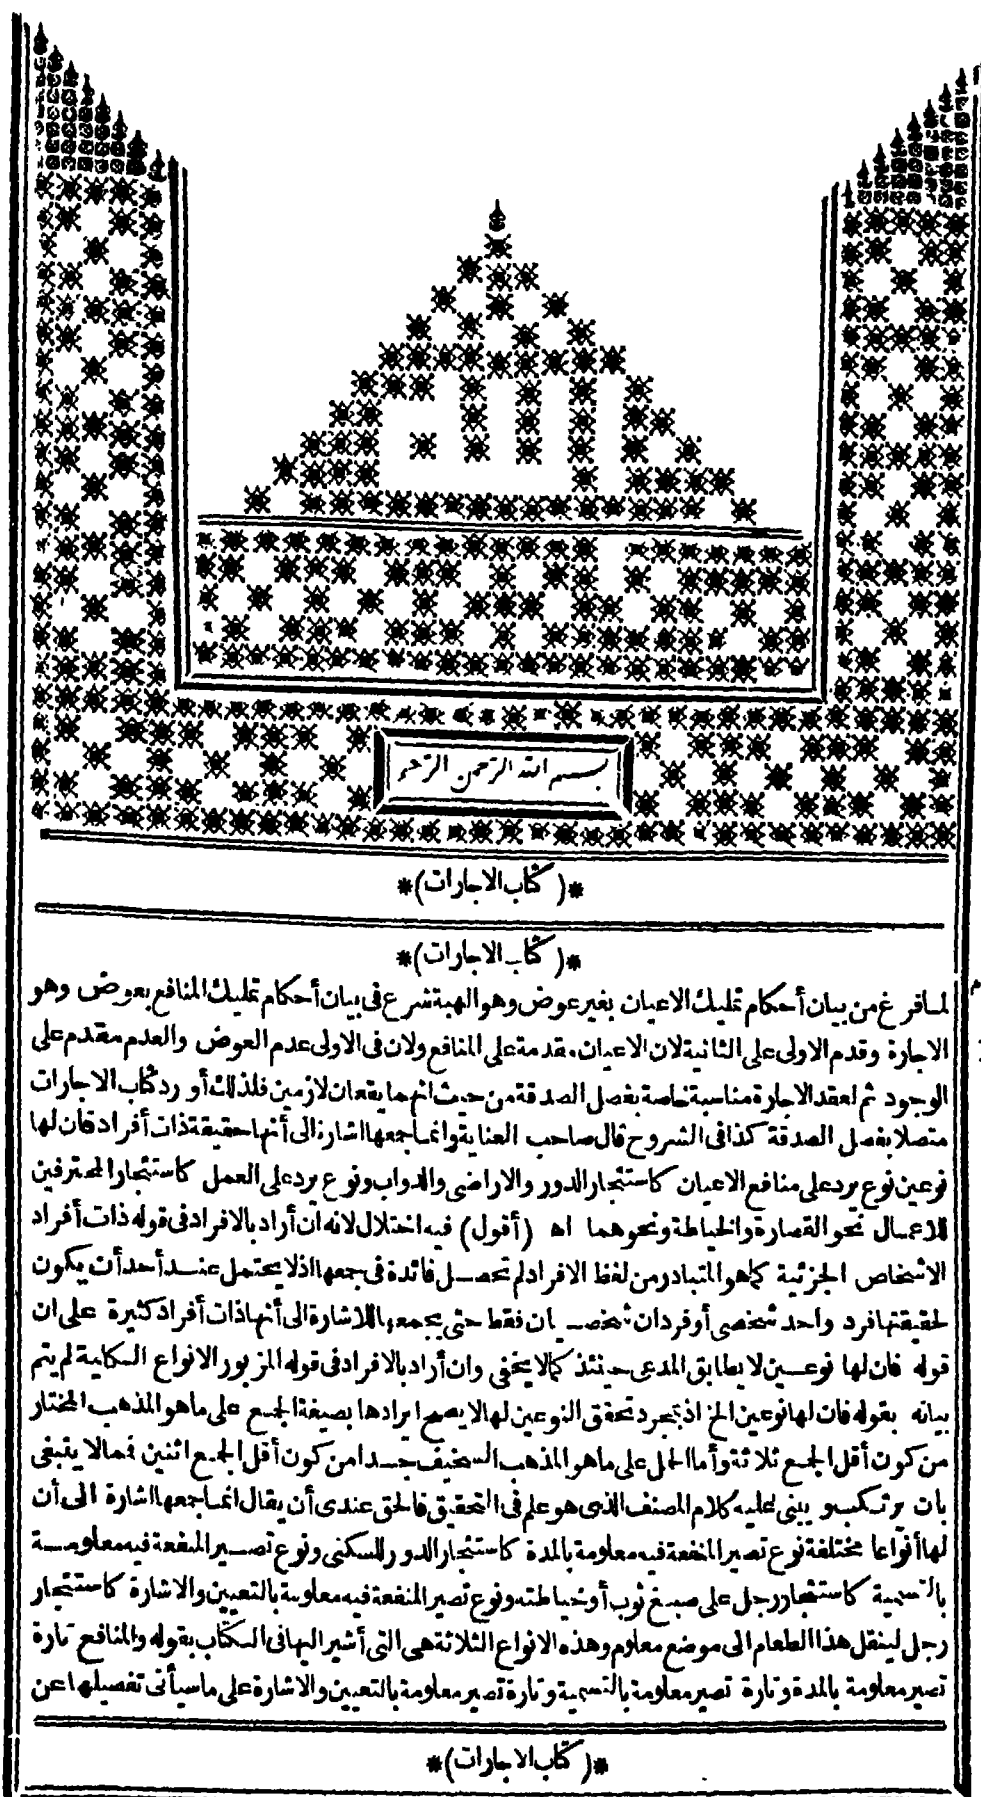 بسم الله الرحمن الرحيم
*( كتاب الاجارات )*
*( كتاب الاجارات )*
لما فرغ من بيان أحكام تمليك الاعيان بغير عوض وهو الهبة شرع فى بيان أحكام تمليك المنافع بعوض وهو
الاجارة وقدم الاولى على الثانية لان الاعيان مقدمة على المنافع ولان فى الاولى عدم العوض والعدم مقدم على
الوجود ثم لعقد الاجارة مناسبة خاصة بفصل الصدقة من حيث انهما يقعان لازمين فلذلك أورد كتاب الاجارات
متصلا بفصل الصدقة كذا فى الشروح قال صاحب العناية وانما جمعها اشارة الى أنها حقيقة ذات أفراد فان لها
نوعين نوع يرد على منافع الاعيان كاستئجار الدور والاراضى والدواب ونوع يرد على العمل كاستئجار المحترفين
للاعمال نحو القصارة والخياطة ونحوهما اه (أقول) فيه اختلال لانه ان أراد بالافراد فى قوله ذات أفراد
الاشخاص الجزئية كما هو المتبادر من لفظ الافراد لم تحصل فائدة فى جمعها اذلا يحتمل عند أحد أن يكون
لحقيقتها فرد واحد شخصى أو فردان شخصيان فقط حتى يجمعها للاشارة الى أنها ذات أفراد كثيرة على ان
قوله فان لها نوعين لا يطابق المدعى حينئذ كما لا يخفى وان أراد بالافراد فى قوله المزبور الانواع الكلية لم يتم
بيانه بقوله فان لها نوعين الخ اذ بمجرد تحقق النوعين لها لا يصح ايرادها بصيغة الجمع على ما هو المذهب المختار
من كون أقل الجمع ثلاثة وأما الحمل على ما هو المذهب السخيف جدا من كون أقل الجمع اثنين فمما لا ينبغى
بان يرتكب ويبنى عليه كلام المصنف الذى هو علم فى التحقيق فالحق عندى أن يقال انما جمعها اشارة الى أن
لها أنواعا مختلفة نوع تصير المنفعة فيه معلومة بالمدة كاستئجار الدور للسكنى ونوع تصير المنفعة فيه معلومة
بالتسمية كاستئجار رجل على صبغ ثوب أو خياطته ونوع تصير المنفعة فيه معلومة بالتعيين والاشارة كاستئجار
رجل لينقل هذا الطعام الى موضع معلوم وهذه الانواع الثلاثة هى التى أشير اليها فى الكتاب بقوله والمنافع تارة
تصير معلومة بالمدة وتارة تصير معلومة بالتسمية وتارة تصير معلومة بالتعيين والاشارة على ما سيأتى تفصيلها عن
*( كتاب الاجارات )*